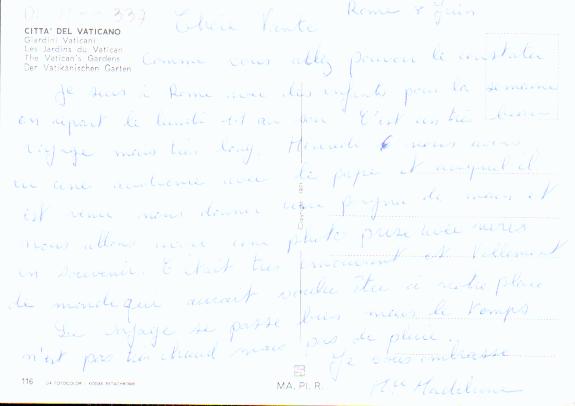 337
Rome 8 Juin
CITTA' DEL VATICANO
Giardini Vaticani
Les Jardins du Vatican
The Vatican's Gardens
Der Vatikanischen Garten
Chère Tante
Comme vous allez pouvoir le constater
Je suis à Rome avec des enfants pour la semaine
on repart le lundi au soir. C'est un très beau
voyage mais très long. nous avons
une audience avec le pape et auquel il
est venu nous donner une de main et
nous allons avoir une photo prise avec
en souvenir. C'était très émouvant et tellement
de monde qui aurait voulu être à notre place
Le voyage se passe bien mais le temps
n'est pas chaud mais pas de pluie.
Je vous embrasse
Madeleine
116
MA. PI. R.